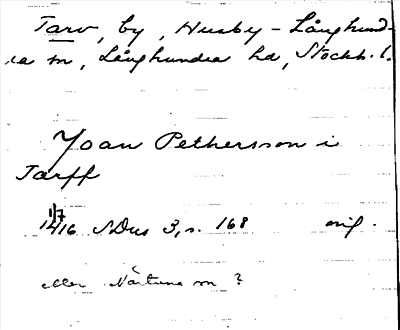 Tarv, by, Husby-Långhund-
ra sn, Långhundra hd, Stockh. l.
Joan Pethersson i
Tarff
1/7
1416 SDns 3, s. 168 orig.
eller Närtuna sn?